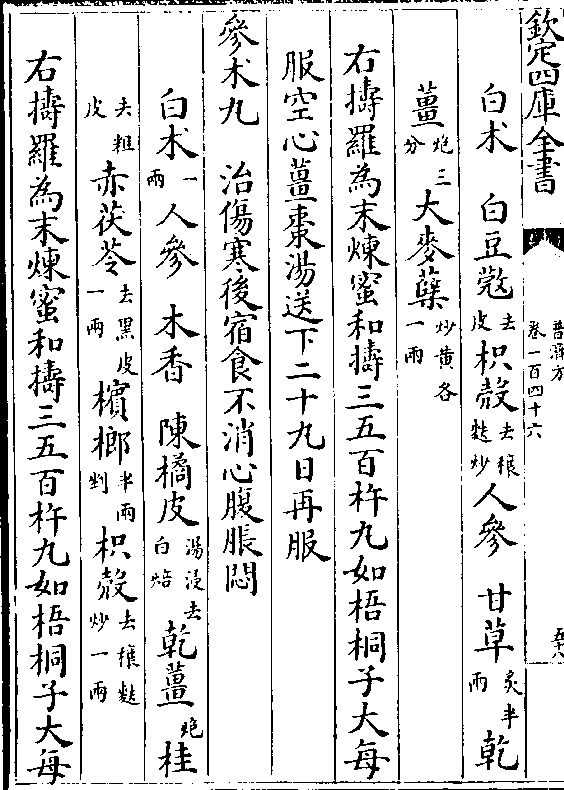 欽定四庫全書
普濟方
卷一百四十六
五十六
白朮 白豆蔲去皮 枳殼去穰麩炒 人參 甘草炙半兩 乾
薑炮三分 大麥蘖炒黄各一兩
右擣羅為末煉蜜和擣三五百杵丸如梧桐子大每
服空心薑棗湯送下二十丸日再服
參朮丸 治傷寒後宿食不消心腹脹悶
白朮一兩 人參 木香 陳橘皮湯浸去白焙 乾薑炮 桂
去粗皮 赤茯苓去黑皮一兩 檳榔半兩剉 枳殼去穰麩炒一兩
右擣羅為末煉蜜和擣三五百杵丸如梧桐子大每